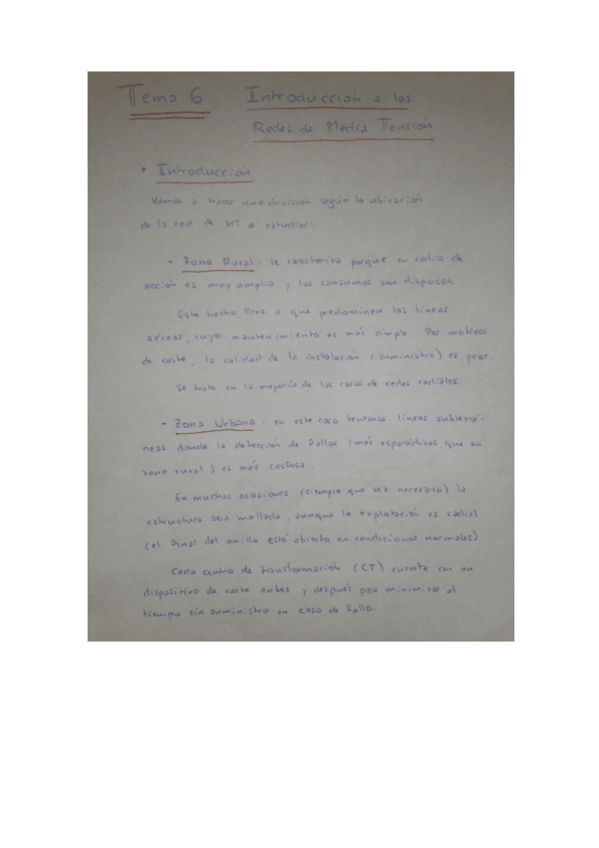 Tema 6. Introducción a las
Redes de Media Tensión
• Introducción
Vamos a hacer una división según la ubicación
de la red de MT a estudiar:
- Zona Rural: se caracteriza porque su radio de
acción es muy amplio y los consumos son dispersos.
Este hecho lleva a que predominen las líneas
aéreas, cuyo mantenimiento es más simple. Por motivos
de coste, la calidad de la instalación (suministro) es peor.
Se trata en la mayoría de los casos de redes radiales.
- Zona Urbana: en este caso tenemos líneas subterrá-
neas donde la detección de fallos (más esporádicos que en
zona rural) es más costosa.
En muchas ocasiones (siempre que sea necesario) la
estructura será mallada, aunque la explotación es radial
(el final del anillo está abierto en condiciones normales).
Cada centro de transformación (CT) cuenta con un
dispositivo de corte antes y después para minimizar el
tiempo sin suministro en caso de fallo.